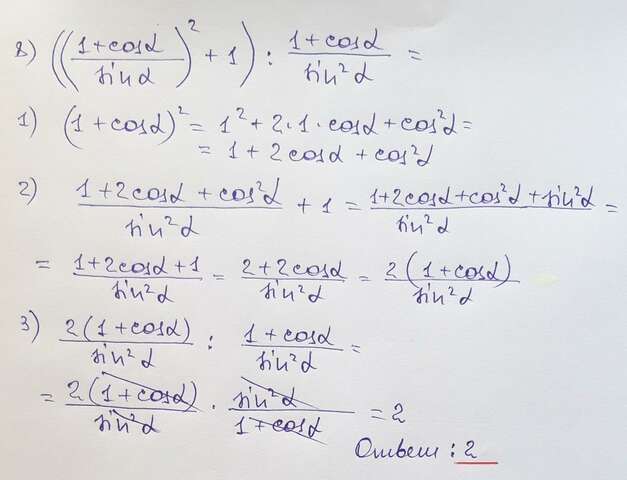 8) (((1+cosα)/(sinα))² + 1) : (1+cosα)/(sin²α) =
1) (1+cosα)² = 1² + 2·1·cosα + cos²α =
= 1 + 2cosα + cos²α
2) (1+2cosα+cos²α)/(sin²α) + 1 = (1+2cosα+cos²α+sin²α)/(sin²α) =
= (1+2cosα+1)/(sin²α) = (2+2cosα)/(sin²α) = (2(1+cosα))/(sin²α)
3) (2(1+cosα))/(sin²α) : (1+cosα)/(sin²α) =
= (2(1+cosα))/(sin²α) · (sin²α)/(1+cosα) = 2
Ответ : 2